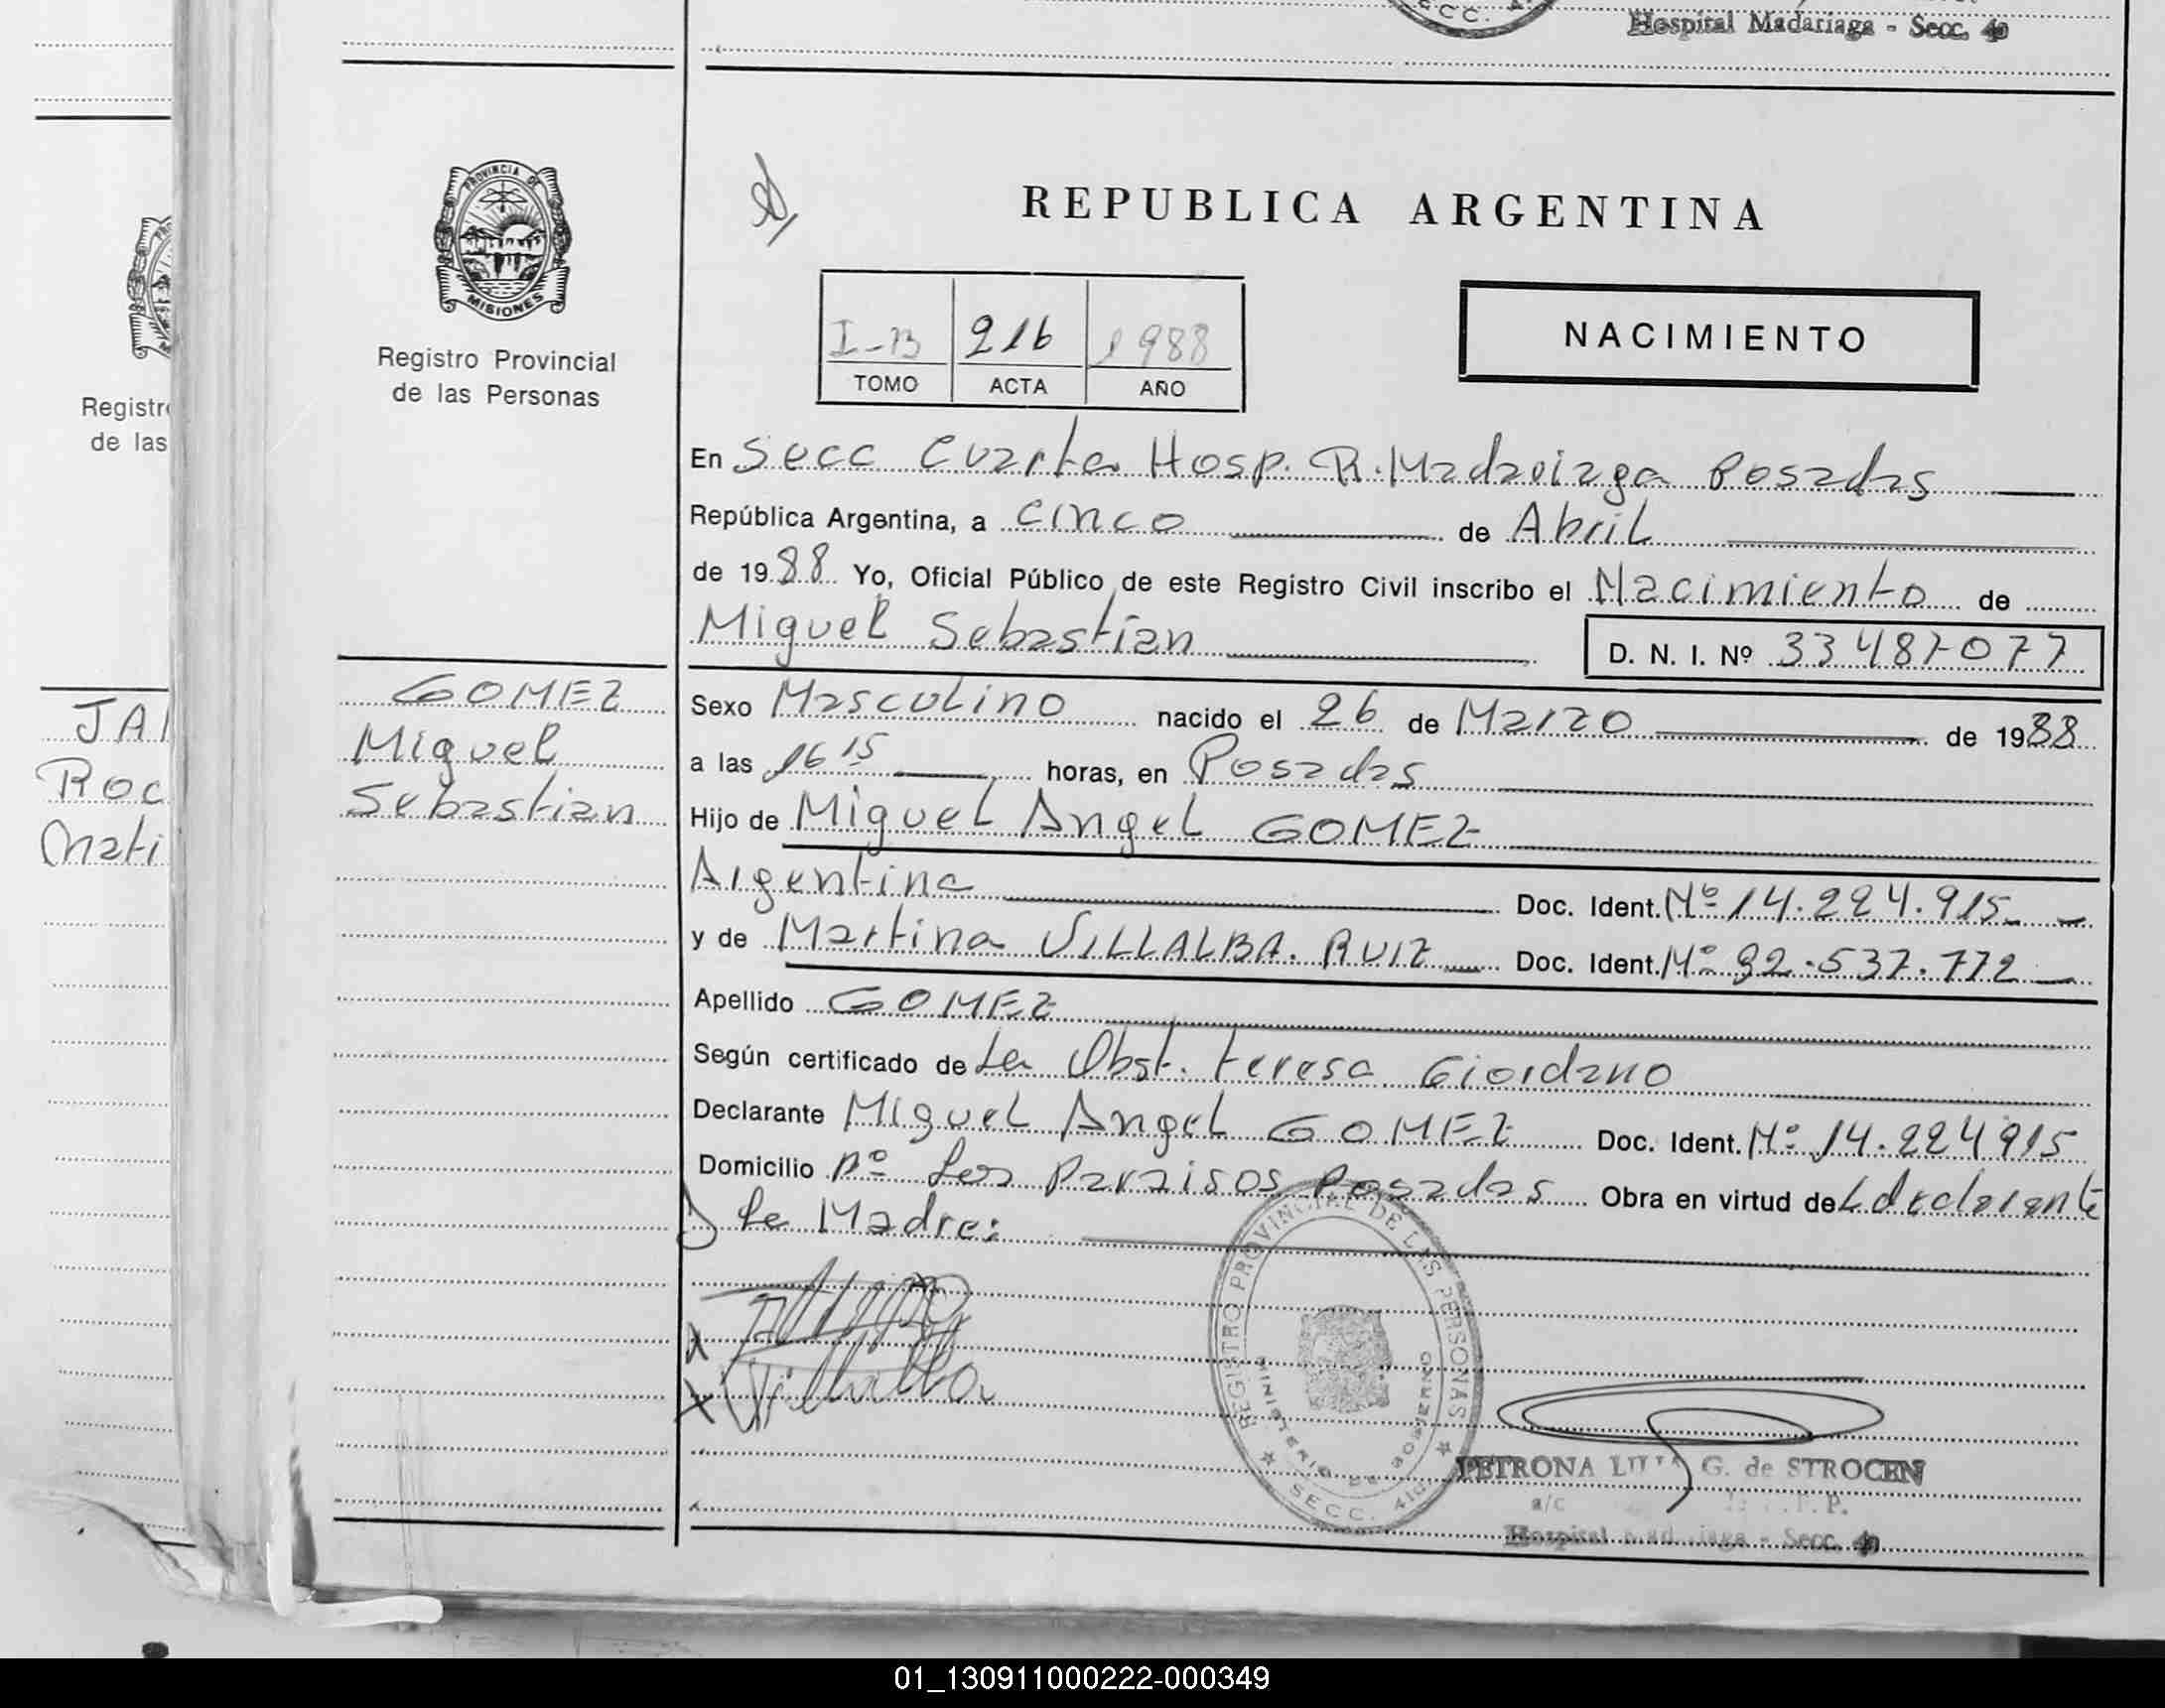 SECC. 4
Hospital Madariaga - Secc. 4a
PROVINCIA DE
MISIONES
Registro Provincial
de las Personas
Registr
de las
REPUBLICA ARGENTINA
I-B 216 1988
TOMO ACTA AÑO
NACIMIENTO
En Secc Cuarta Hosp. R. Madariaga Posadas
República Argentina, a cinco de Abril
de 1988 Yo, Oficial Público de este Registro Civil inscribo el Nacimiento de
Miguel Sebastian
D. N. I. Nº 33487077
GOMEZ
Miguel
Sebastian
JA
Roc
Mati
Sexo Masculino nacido el 26 de Marzo de 1988
a las 16 15 horas, en Posadas
Hijo de Miguel Angel GOMEZ
Argentina Doc. Ident. Nº 14.224.915
y de Martina VILLALBA. RUIZ Doc. Ident. Nº 92.537.772
Apellido GOMEZ
Según certificado de La Obst. Teresa Giordano
Declarante Miguel Angel GOMEZ Doc. Ident. Nº 14.224915
Domicilio Bº Los Paraisos Posadas Obra en virtud de L declarante
y la Madre:
Villalba
REGISTRO PROVINCIAL DE LAS PERSONAS
MINISTERIO DE GOBIERNO
SECC. 4ta.
PETRONA G. de STROCEN
a/c
Hospital Madariaga - Secc. 4a
01_130911000222-000349